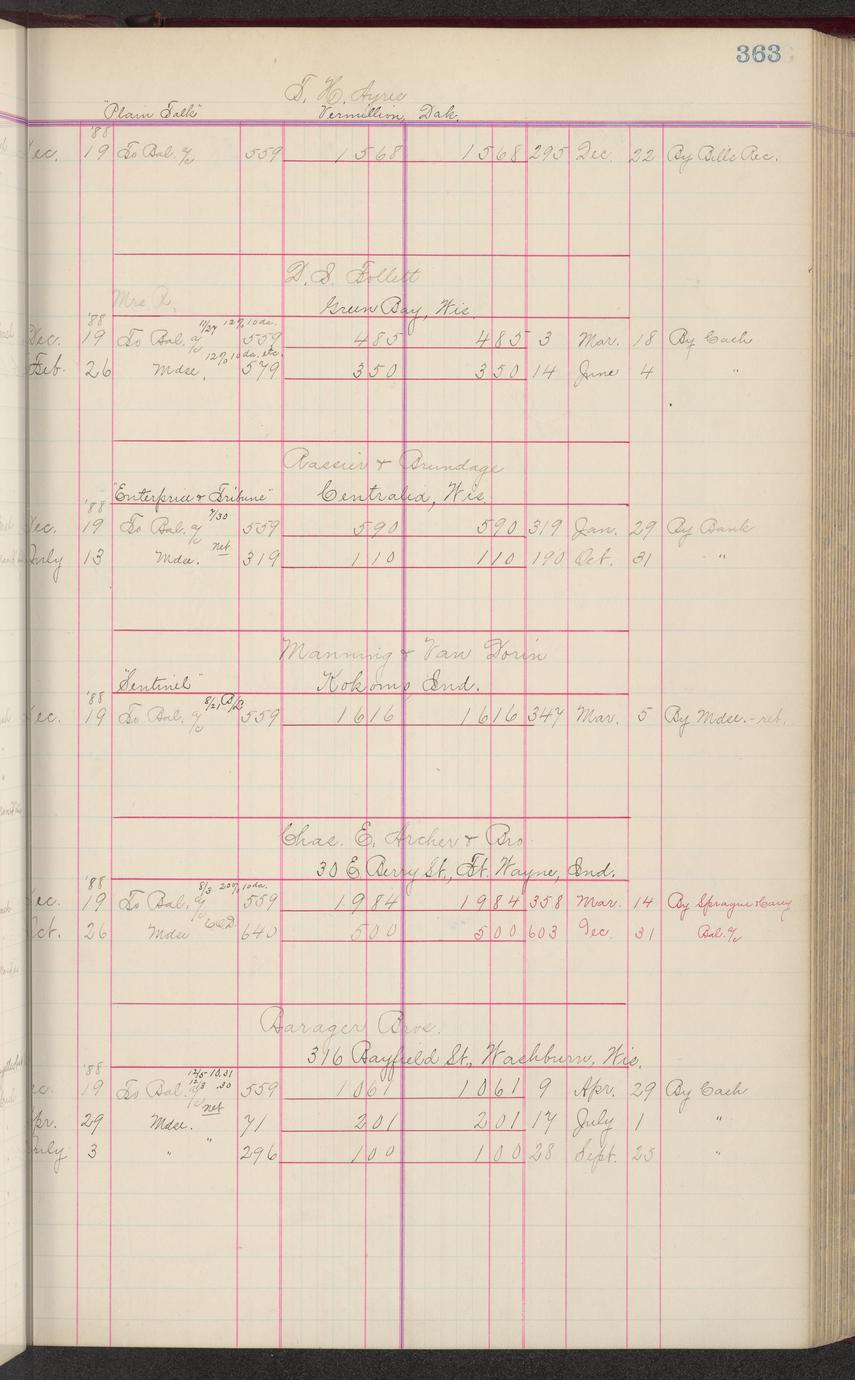 363
T. H. Ayres
"Plain Talk" Vermillion, Dak.
'88
Dec. 19 To Bal. a/c 559 1568 1568 295 Dec. 22 By Bills Rec.
D. S. Follett
Mrs. R. Green Bay, Wis.
'88 11/27 12% 10 da.
Dec. 19 To Bal. a/c 559 485 485 3 Mar. 18 By Cash
12% 10 da. etc.
Feb. 26 Mdse. 579 350 350 14 June 4 "
Rassier & Brundage
"Enterprise & Tribune" Centralia, Wis.
'88 7/30
Dec. 19 To Bal. a/c 559 590 590 319 Jan. 29 By Bank
July 13 Mdse. net 319 110 110 190 Oct. 31 "
Manning & Van Dorin
"Sentinel" Kokomo Ind.
'88 8/21
Dec. 19 To Bal. a/c 559 1616 1616 347 Mar. 5 By Mdse. - ret.
Chas. E. Archer & Bro.
30 E Berry St., Ft. Wayne, Ind.
'88 8/3 20% 10 da.
Dec. 19 To Bal. a/c 559 1984 1984 358 Mar. 14 By Sprague
Oct. 26 Mdse COD. 640 500 500 603 Dec. 31 Bal. a/c
Barager Bros.
316 Bayfield St., Washburn, Wis.
'88 12/5 10.31
12/3 .30
Dec. 19 To Bal. a/c 559 1061 1061 9 Apr. 29 By Cash
Apr. 29 Mdse. net 71 201 201 17 July 1 "
July 3 " " 296 100 100 28 Sept. 25 "